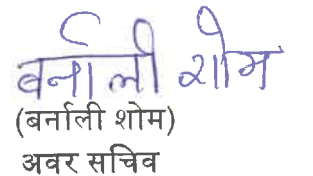 बर्नाली शोम
(बर्नाली शोम)
अवर सचिव